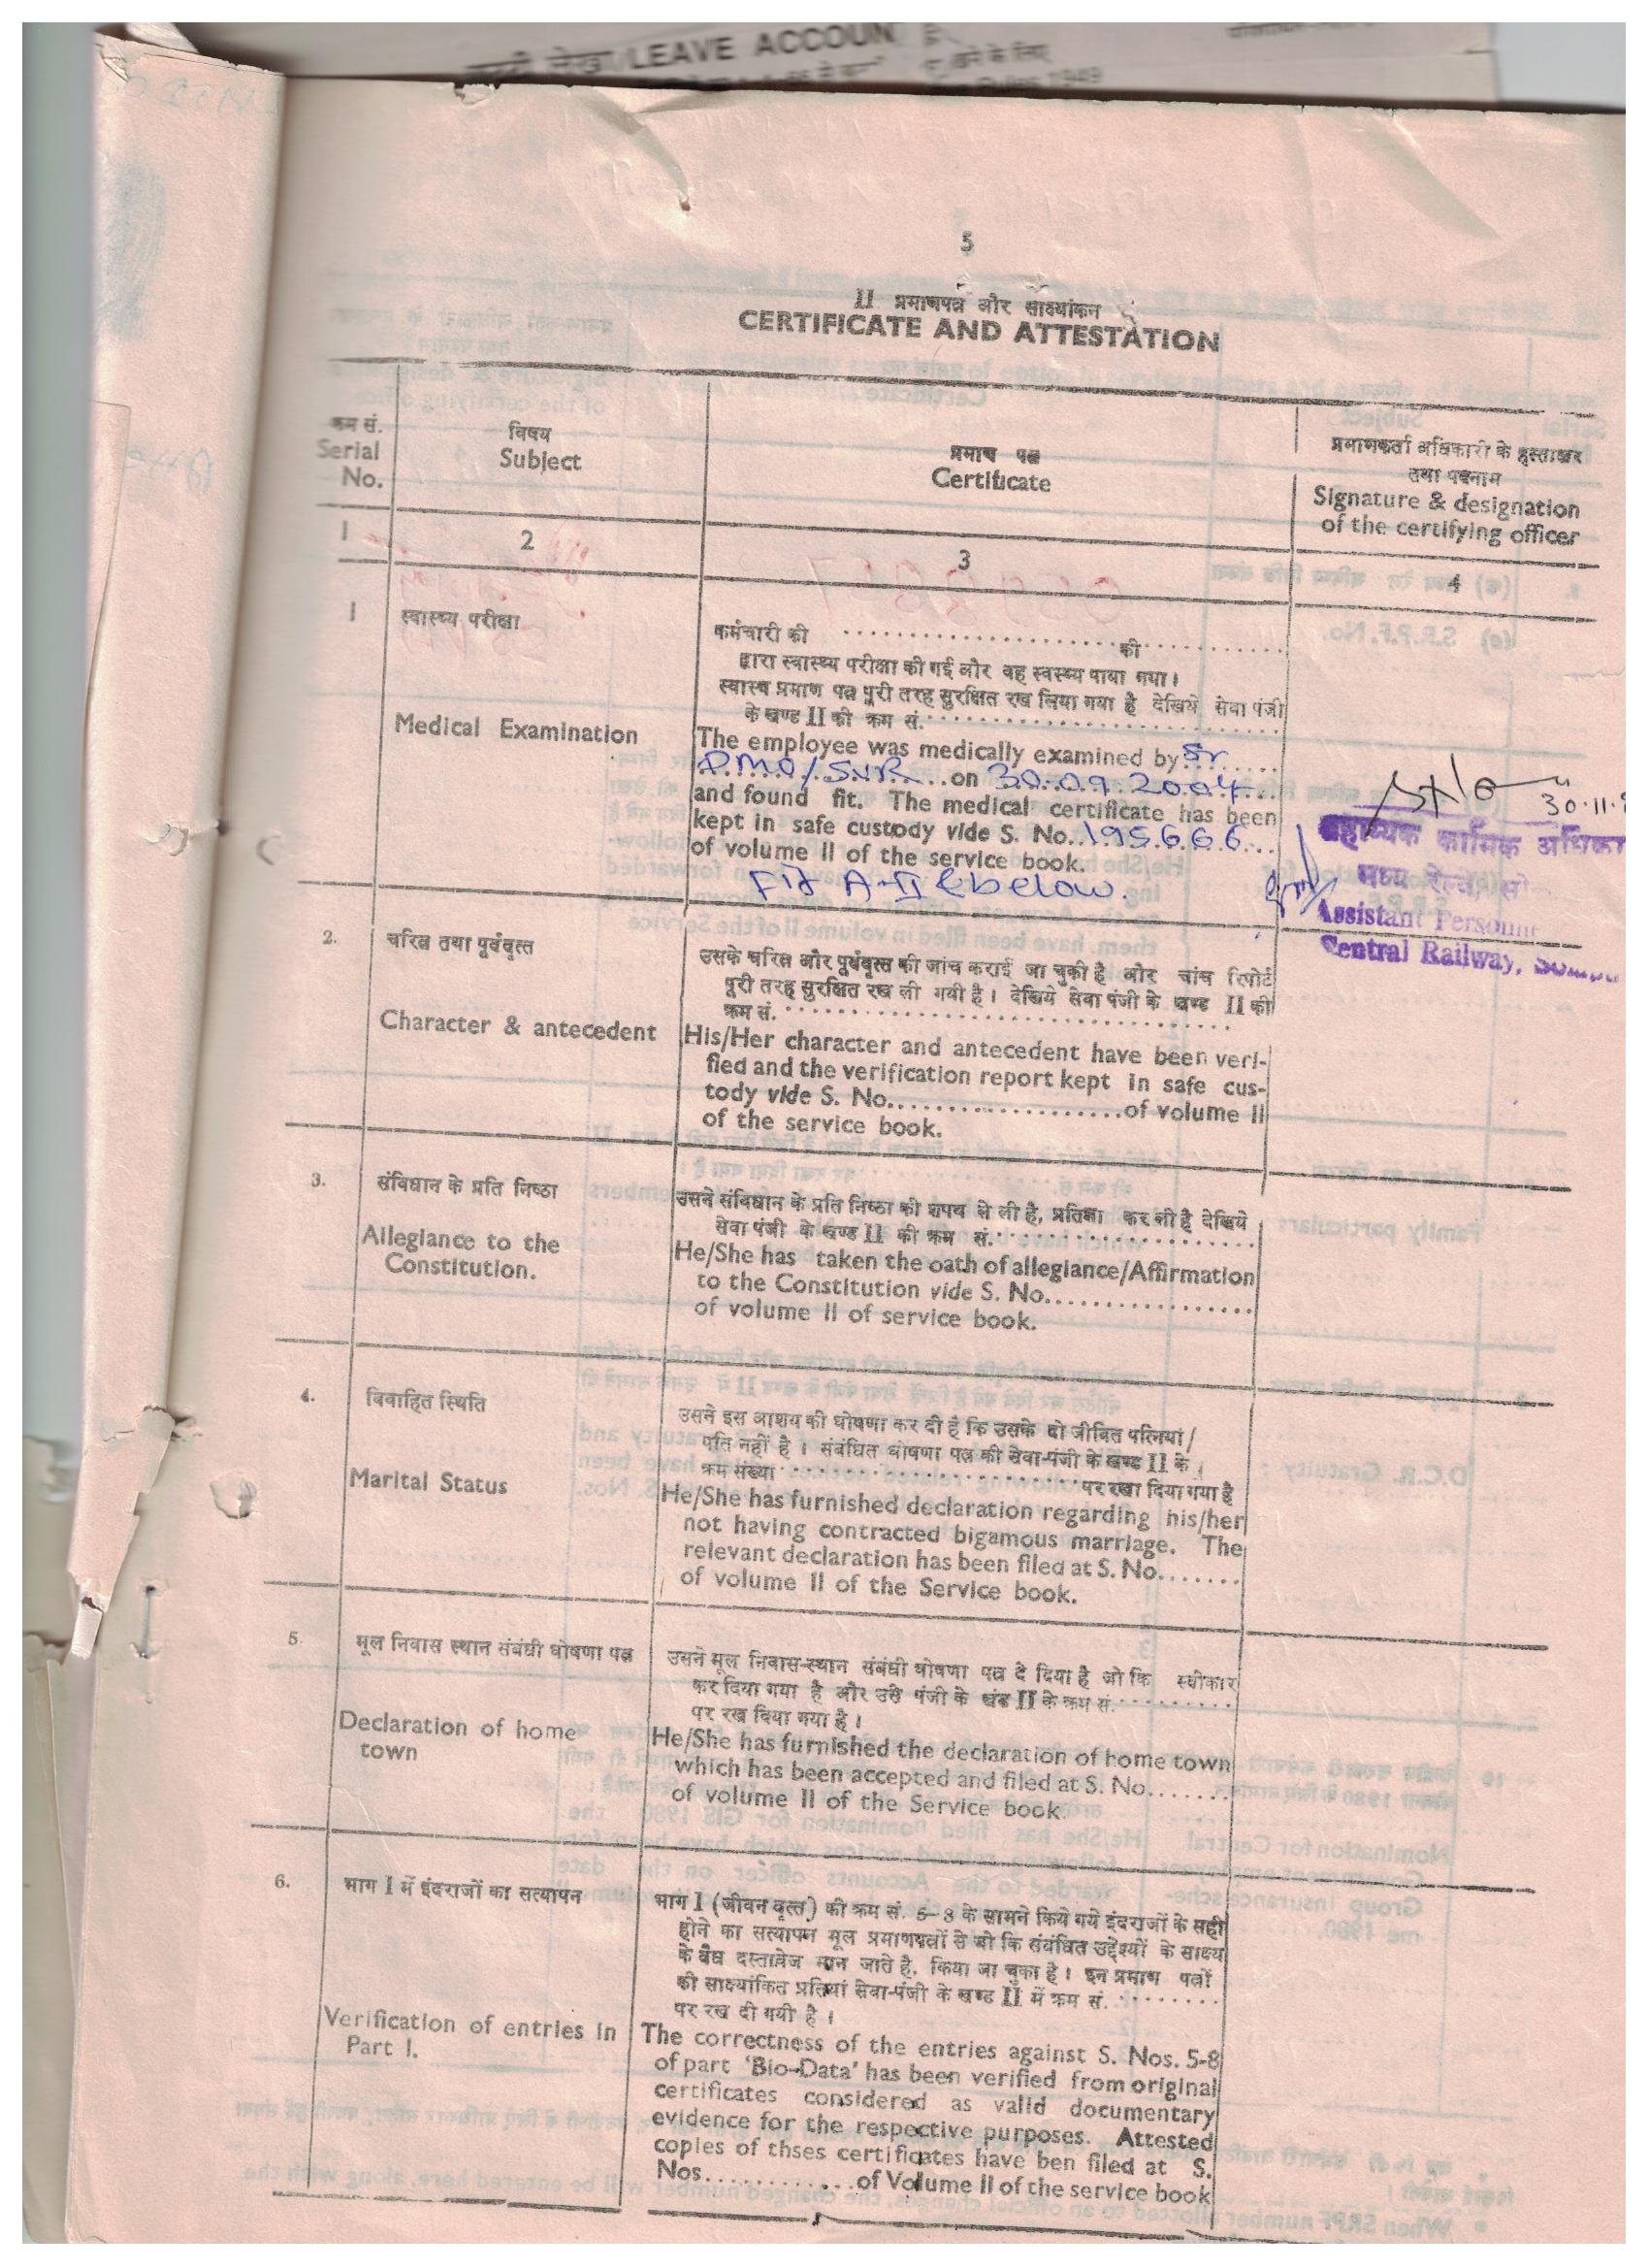 LEAVE ACCOUN
5
II प्रमाणपत्र और साक्ष्यांकन
CERTIFICATE AND ATTESTATION
क्रम सं.
Serial
No.
विषय
Subject
प्रमाण पत्र
Certificate
प्रमाणकर्ता अधिकारी के हस्ताक्षर
तथा पदनाम
Signature & designation
of the certifying officer
1
2
3
4
1
स्वास्थ्य परीक्षा
Medical Examination
कर्मचारी की .................... की ............
द्वारा स्वास्थ्य परीक्षा की गई और वह स्वस्थ्य पाया गया।
स्वास्थ प्रमाण पत्र पूरी तरह सुरक्षित रख लिया गया है देखिये सेवा पंजी
के खण्ड II की क्रम सं..............................
The employee was medically examined by Sr
D.M.O/SUR on 30.09.2004
and found fit. The medical certificate has been
kept in safe custody vide S. No. 195666
of volume II of the service book.
Fit A-II & below.
30.11.
सहाय्यक कार्मिक अधिका
मध्य रेलवे, सो
Assistant Personne
Central Railway,
2.
चरित्र तथा पूर्ववृत्त
Character & antecedent
उसके चरित्र और पूर्ववृत्त की जांच कराई जा चुकी है और जांच रिपोर्ट
पूरी तरह सुरक्षित रख ली गयी है। देखिये सेवा पंजी के खण्ड II की
क्रम सं. ................................
His/Her character and antecedent have been veri-
fied and the verification report kept in safe cus-
tody vide S. No....................of volume II
of the service book.
3.
संविधान के प्रति निष्ठा
Allegiance to the
Constitution.
उसने संविधान के प्रति निष्ठा की शपथ ले ली है, प्रतिज्ञा कर ली है देखिये
सेवा पंजी के खण्ड II की क्रम सं......................
He/She has taken the oath of allegiance/Affirmation
to the Constitution vide S. No..................
of volume II of service book.
4.
विवाहित स्थिति
Marital Status
उसने इस आशय की घोषणा कर दी है कि उसके दो जीवित पत्नियां/
पति नहीं है। संबंधित घोषणा पत्र की सेवा-पंजी के खण्ड II के
क्रम संख्या .............................. पर रखा दिया गया है
He/She has furnished declaration regarding his/her
not having contracted bigamous marriage. The
relevant declaration has been filed at S. No.......
of volume II of the Service book.
5.
मूल निवास स्थान संबंधी घोषणा पत्र
Declaration of home
town
उसने मूल निवास-स्थान संबंधी घोषणा पत्र दे दिया है जो कि स्वीकार
कर दिया गया है और उसे पंजी के खंड II के क्रम सं...........
पर रख दिया गया है।
He/She has furnished the declaration of home town
which has been accepted and filed at S. No.......
of volume II of the Service book.
6.
भाग I में इंदराजों का सत्यापन
Verification of entries in
Part I.
भाग I (जीवन वृत्त) की क्रम सं. 5-8 के सामने किये गये इंदराजों के सही
होने का सत्यापन मूल प्रमाणपत्रों से जो कि संबंधित उद्देश्यों के साक्ष्य
के वैध दस्तावेज मान जाते है, किया जा चुका है। इन प्रमाण पत्रों
की साक्ष्यांकित प्रतियां सेवा-पंजी के खण्ड II में क्रम सं. .........
पर रख दी गयी है।
The correctness of the entries against S. Nos. 5-8
of part 'Bio-Data' has been verified from original
certificates considered as valid documentary
evidence for the respective purposes. Attested
copies of thses certificates have ben filed at S.
Nos.............of Volume II of the service book